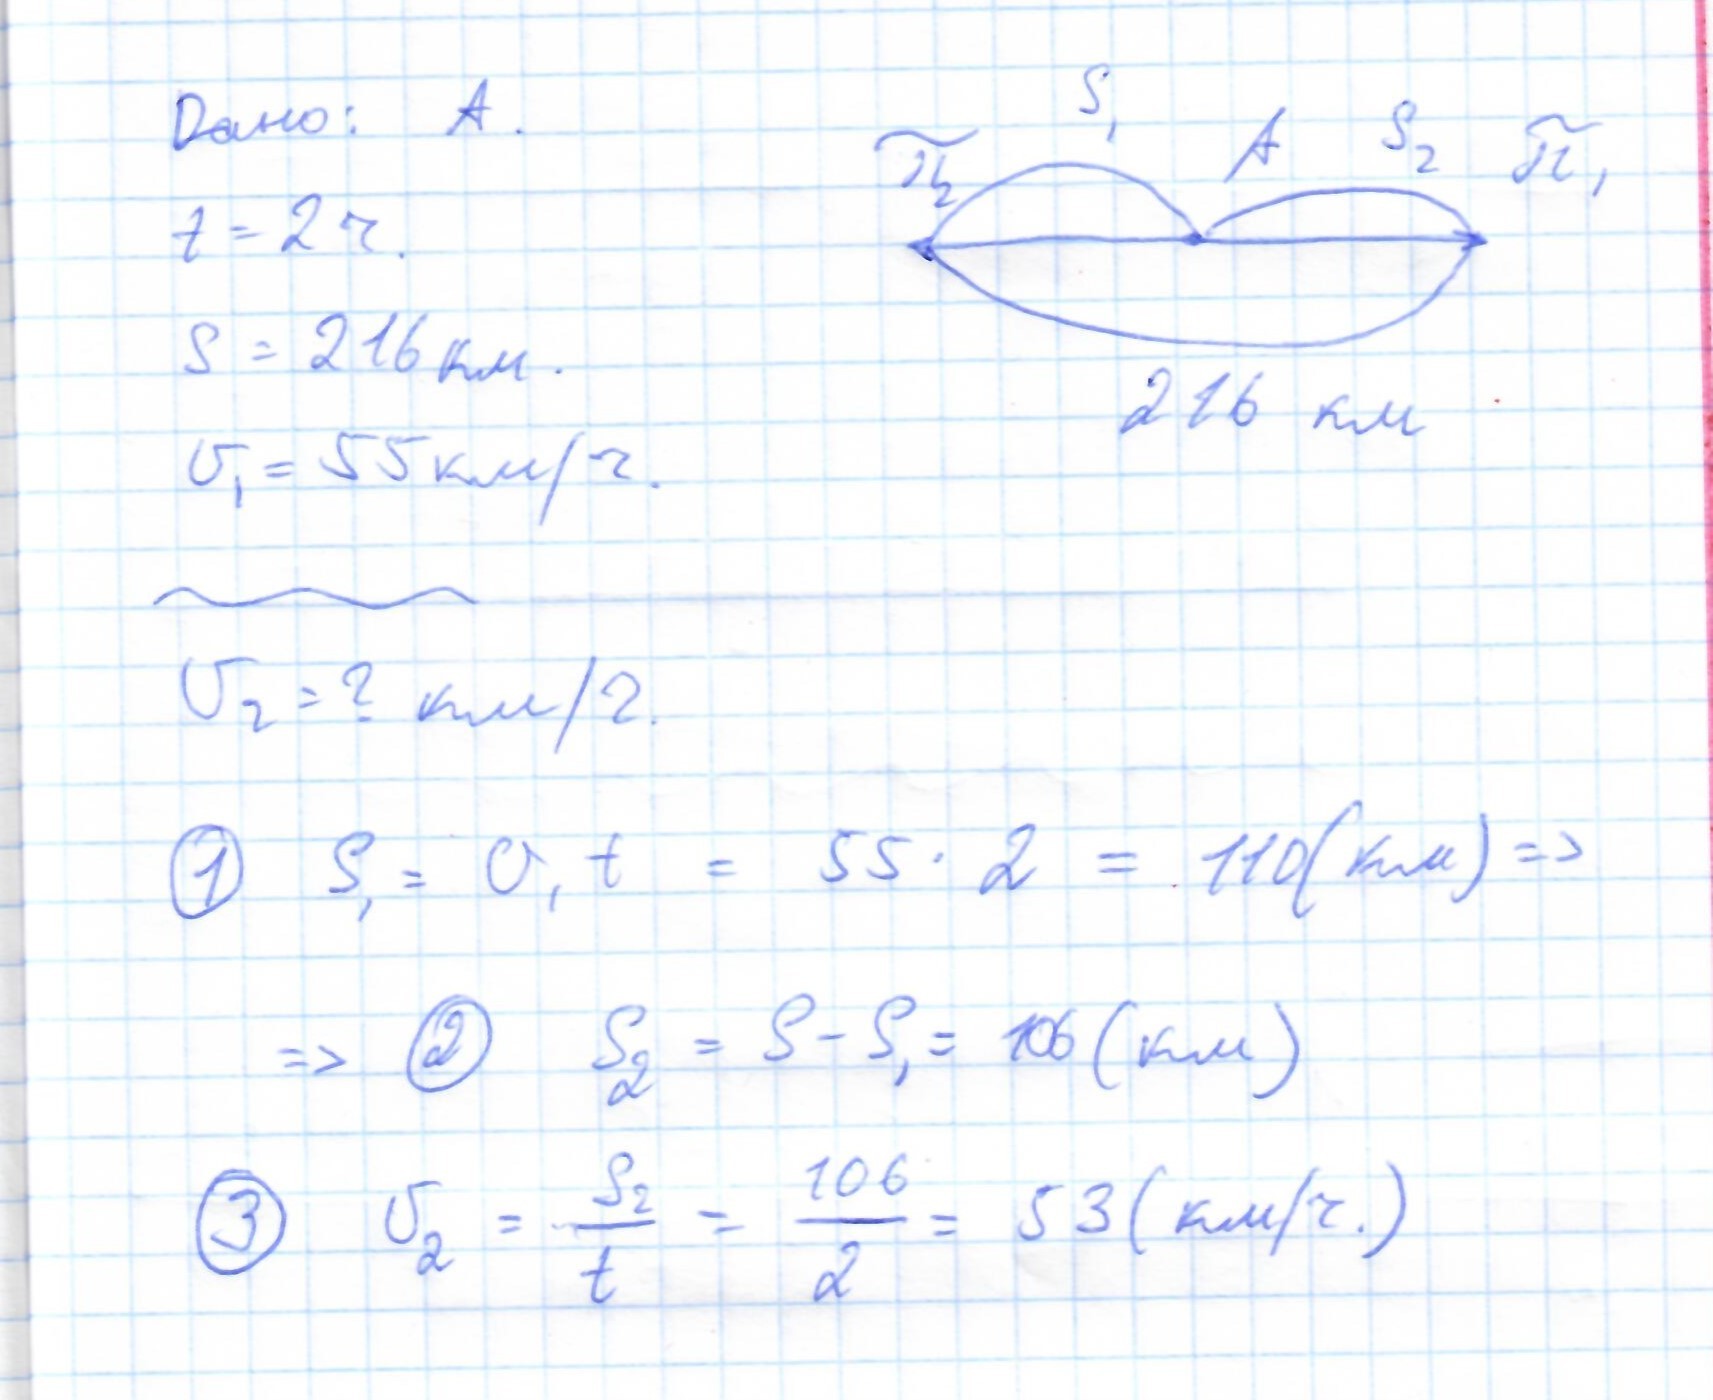 Дано: А.
t = 2 ч.
S = 216 км.
υ₁ = 55 км/ч.
υ₂ = ? км/ч.
S₁ А S₂
216 км
① S₁ = υ₁ t = 55 · 2 = 110 (км) =>
=> ② S₂ = S - S₁ = 106 (км)
③ υ₂ = S₂/t = 106/2 = 53 (км/ч.)